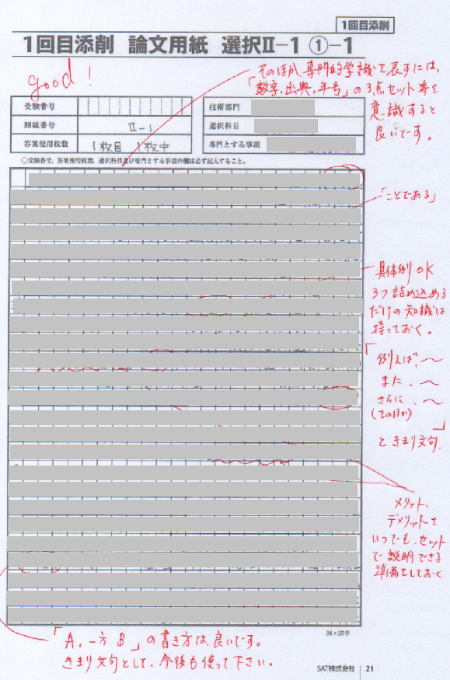 1回目添削
1回目添削 論文用紙 選択Ⅱ-1 ①-1
good!
そのほか、専門的学識を表すには、
「数字、出典、年号」の3点セット等を
意識すると
良いです。
受験番号
問題番号 Ⅱ-1
答案使用枚数 1枚目 1枚中
技術部門
選択科目
専門とする事項
○受験番号、答案使用枚数、選択科目及び専門とする事項の欄は必ず記入すること。
「ことである」
具体例OK
3つ詰め込める
だけの知識は
持っておく。
「例えば、〜
また、〜
さらに、〜
(そのほか)
」
ときまり文句.
メリット、
デメリットを
いつでも、セット
で説明できる
準備をしておく
「A、一方B」の書き方は、良いです。
きまり文句として、今後も使って下さい。
24×25字
SAT株式会社 21